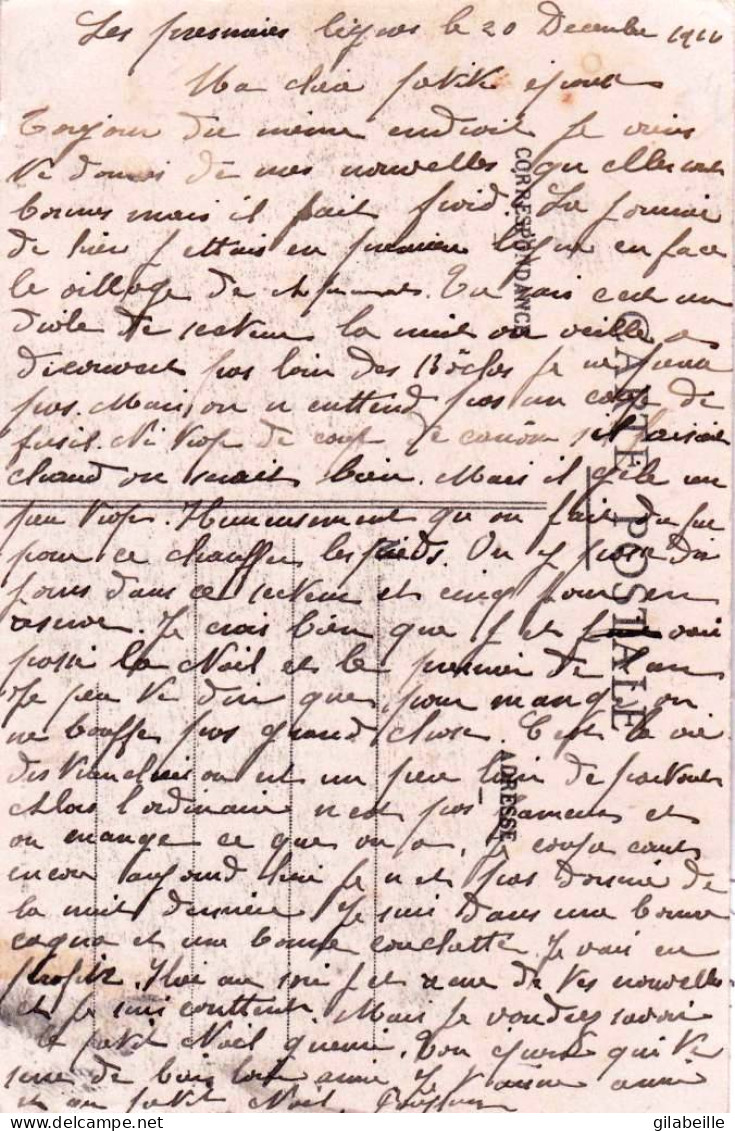 Les premieres lignes le 20 Decembre 191
Ma chere petite epouse
Toujour du meme endroit Je viens
te donner de mes nouvelles qu elles sont
bonnes mais il fait froid. La journée
de hier j ettais en premiere ligne en face
le village de Tu sais cest un
drole de secteur la nuit on veille a
decouvert pas loin des Bôches Je ne peux
pas. Mais on n enttend pas un coup de
fusil. Ni trop de coup de canôn sil faisait
chaud on serait bien. Mais il gèle un
peu trop. Heureusement qu on fait du feu
pour ce chauffer les pieds. On y passe dix
jours dans ce secteur et cinq jour en
reserve. Je crois bien que j et vais
passé la Noël et le premier de l an
Je peu te dire que pour mangé on
ne bouffe pas grand chose. C est la vie
des tranchées on est un peu loin de partout
Alors l ordinaire n est pas fameux et
on mange ce que on a. Je
encore aujourd hui Je n et pas dormie de
la nuit derniere Je suis dans une bonne
cagna et une bonne couchette Je vais en
profité. Hier au soir j et recue de tes nouvelles
et je suis conttent. Mais je voudrez savoir
le petit Noël Ton epoux qui te
sere de bien loin amie Je t aime amie
et au petit Noël.
CORRESPONDANCE
CARTE POSTALE
ADRESSE
gilabeille